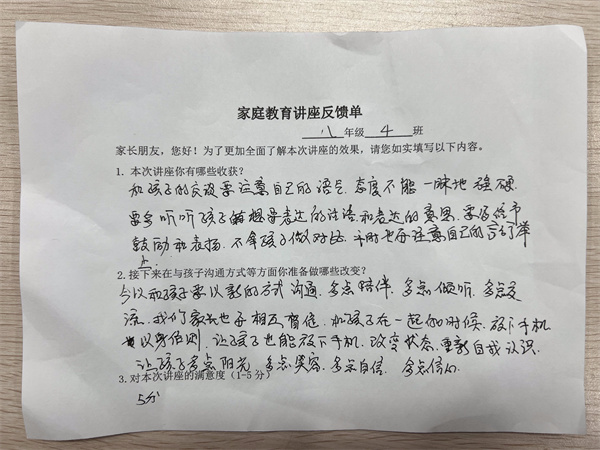 家庭教育讲座反馈单
八 年级 4 班
家长朋友，您好！为了更加全面了解本次讲座的效果，请您如实填写以下内容。
1. 本次讲座你有哪些收获？
和孩子的交谈要注意自己的语气，态度不能一味地强硬
要多听听孩子的想要表达的话语和表达的意思，要多给予
鼓励和表扬，不拿孩子做对比，平时也要注意自己的言行举
止
2. 接下来在与孩子沟通方式等方面你准备做哪些改变？
今以和孩子要以新的方式沟通，多点陪伴，多点倾听，多点交
流，我们家长也要相互督促，和孩子在一起的时候，放下手机
以身作则，让孩子也能放下手机，改变状态，重新自我认识，
让孩子多点阳光，多点笑容，多点自信，多点信心
3. 对本次讲座的满意度（1-5 分）
5分